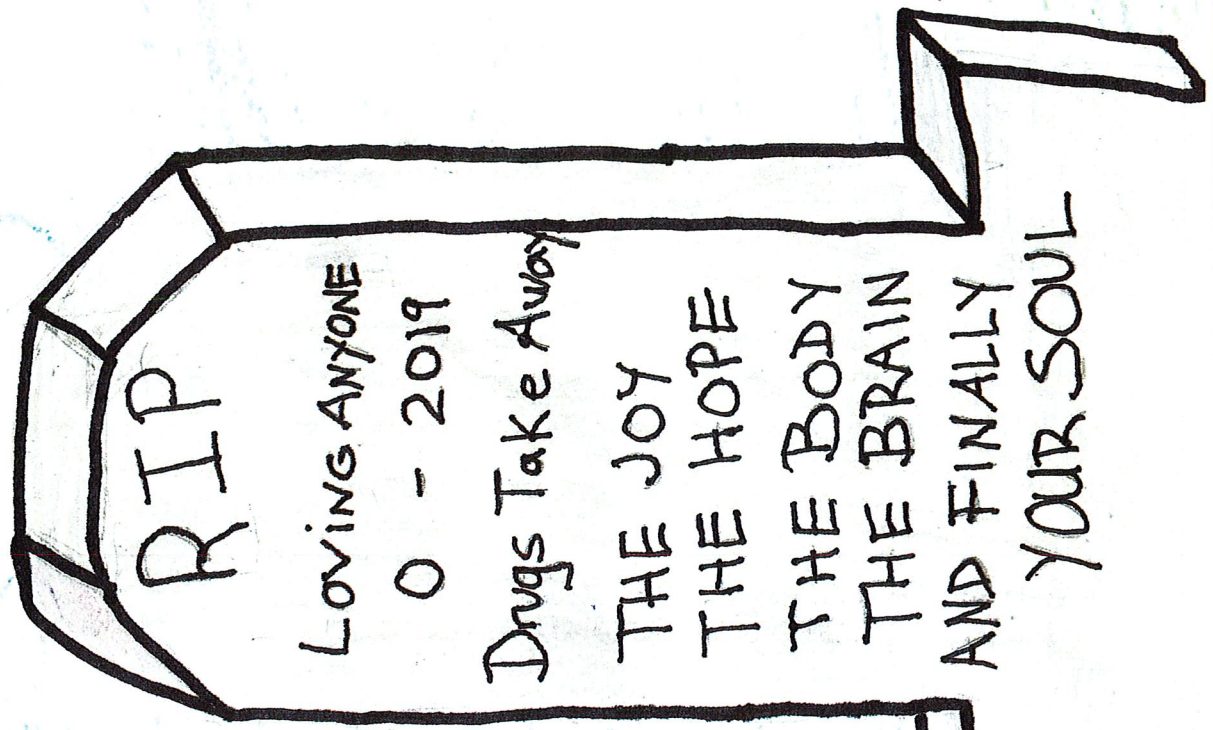 RIP
LOVING ANYONE
0 - 2019
Drugs Take Away
THE JOY
THE HOPE
THE BODY
THE BRAIN
AND FINALLY
YOUR SOUL